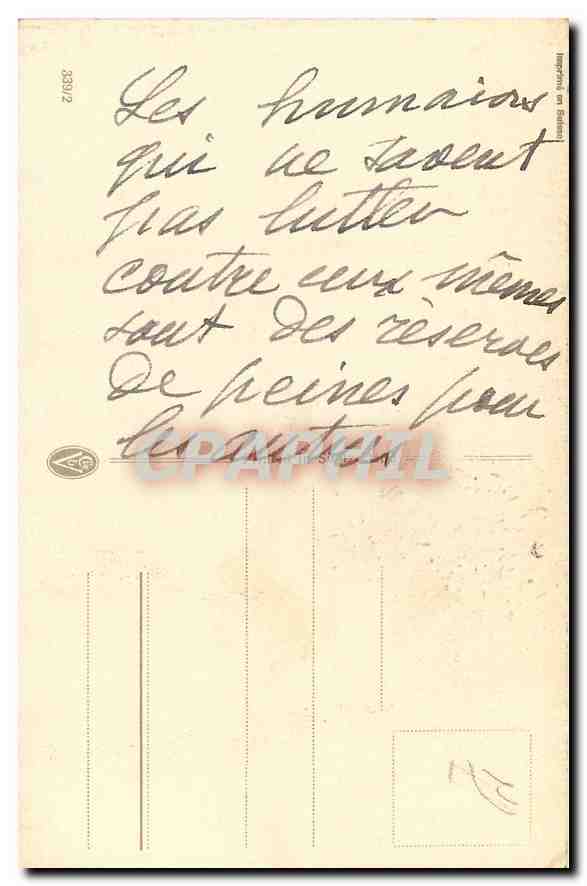 Les humains
qui ne savent
pas lutter
contre eux mêmes
sont des réserves
de peines pour
les autres
339/2
Imprimé en Suisse
CPAPHIL